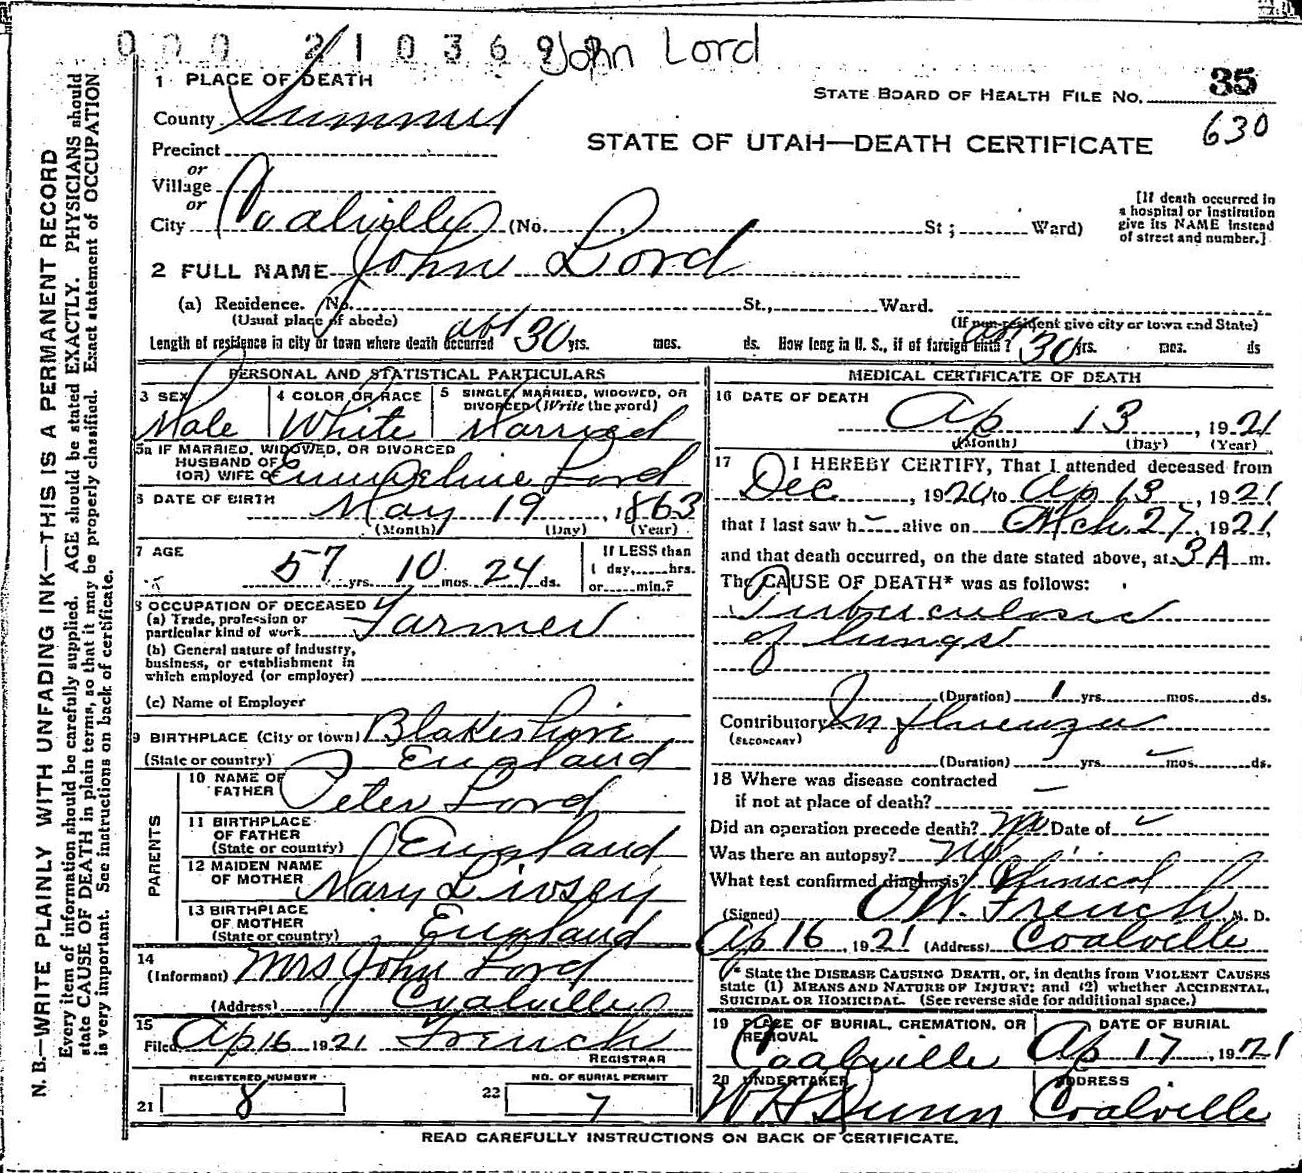 000 210369 John Lord
1 PLACE OF DEATH
35
STATE BOARD OF HEALTH FILE NO.
630
County Summit
STATE OF UTAH—DEATH CERTIFICATE
Precinct
or
Village
or
City Coalville (No. St; Ward)
[If death occurred in a hospital or institution give its NAME instead of street and number.]
2 FULL NAME John Lord
(a) Residence. No. St., Ward.
(Usual place of abode) (If non-resident give city or town and State)
Length of residence in city or town where death occurred abt 30 yrs. mos. ds. How long in U. S., if of foreign birth? abt 30 yrs. mos. ds
PERSONAL AND STATISTICAL PARTICULARS
3 SEX Male
4 COLOR OR RACE White
5 SINGLE, MARRIED, WIDOWED, OR DIVORCED (Write the word) Married
5a IF MARRIED, WIDOWED, OR DIVORCED
HUSBAND OF
(OR) WIFE OF Emmeline Lord
6 DATE OF BIRTH May 19, 1863
(Month) (Day) (Year)
7 AGE 57 yrs. 10 mos. 24 ds.
If LESS than
1 day, hrs.
or min.?
8 OCCUPATION OF DECEASED
(a) Trade, profession or
particular kind of work Farmer
(b) General nature of industry,
business, or establishment in
which employed (or employer)
(c) Name of Employer
9 BIRTHPLACE (City or town) Blakeshire
(State or country) England
PARENTS
10 NAME OF
FATHER Peter Lord
11 BIRTHPLACE
OF FATHER
(State or country) England
12 MAIDEN NAME
OF MOTHER Mary Livsey
13 BIRTHPLACE
OF MOTHER
(State or country) England
14
(Informant) Mrs John Lord
(Address) Coalville
15
Filed Ap 16 1921 French
REGISTRAR
REGISTERED NUMBER
21 8
NO. OF BURIAL PERMIT
22 7
MEDICAL CERTIFICATE OF DEATH
16 DATE OF DEATH
Ap 13, 1921
(Month) (Day) (Year)
17 I HEREBY CERTIFY, That I attended deceased from
Dec, 1920 to Ap 13, 1921
that I last saw h alive on Mch 27, 1921,
and that death occurred, on the date stated above, at 3 A m.
The CAUSE OF DEATH* was as follows:
Tuberculosis
of lungs
(Duration) 1 yrs. mos. ds.
Contributory Influenza
(SECONDARY)
(Duration) yrs. mos. ds.
18 Where was disease contracted
if not at place of death?
Did an operation precede death? No Date of
Was there an autopsy? No
What test confirmed diagnosis? Clinical
(Signed) O.W. French, M. D.
Ap 16, 1921 (Address) Coalville
* State the DISEASE CAUSING DEATH, or, in deaths from VIOLENT CAUSES
state (1) MEANS AND NATURE OF INJURY; and (2) whether ACCIDENTAL,
SUICIDAL OR HOMICIDAL. (See reverse side for additional space.)
19 PLACE OF BURIAL, CREMATION, OR
REMOVAL
Coalville
DATE OF BURIAL
Ap 17, 1921
20 UNDERTAKER
W H Dunn
ADDRESS
Coalville
READ CAREFULLY INSTRUCTIONS ON BACK OF CERTIFICATE.
N. B.—WRITE PLAINLY WITH UNFADING INK—THIS IS A PERMANENT RECORD
Every item of information should be carefully supplied. AGE should be stated EXACTLY. PHYSICIANS should
state CAUSE OF DEATH in plain terms, so that it may be properly classified. Exact statement of OCCUPATION
is very important. See instructions on back of certificate.